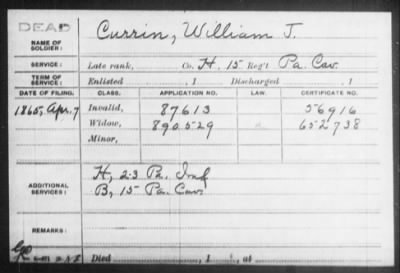 DEAD
NAME OF SOLDIER: Currin, William J.
SERVICE: Late rank, Co. H, 15 Reg't Pa. Cav.
TERM OF SERVICE: Enlisted , 1 Discharged , 1
DATE OF FILING. CLASS. APPLICATION NO. LAW. CERTIFICATE NO.
1865, Apr. 7 Invalid, 87613 56916
Widow, 890529 652738
Minor,
ADDITIONAL SERVICES: H, 23 Pa. Inf
B, 15 Pa. Cav.
REMARKS:
Died , 1 , at